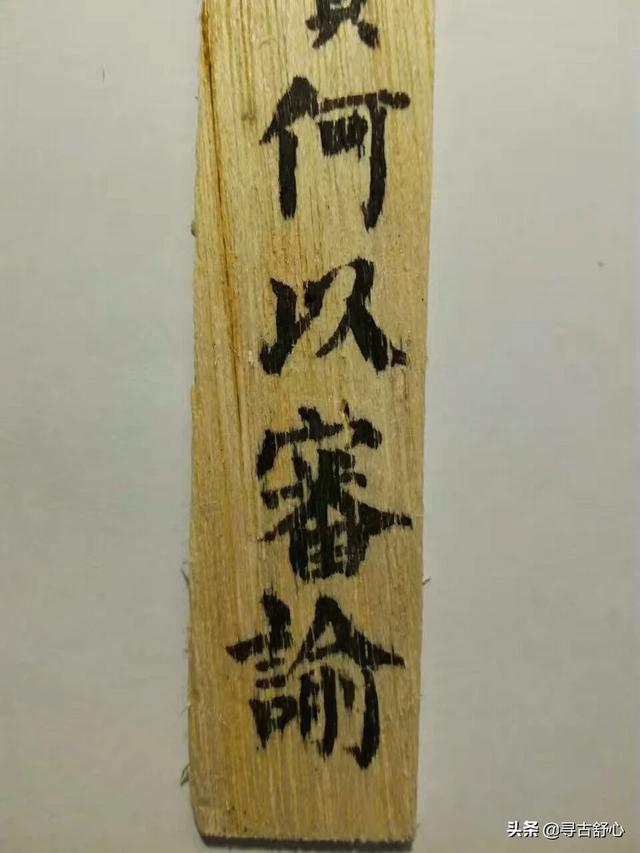 何以審諭
头条 @寻古舒心